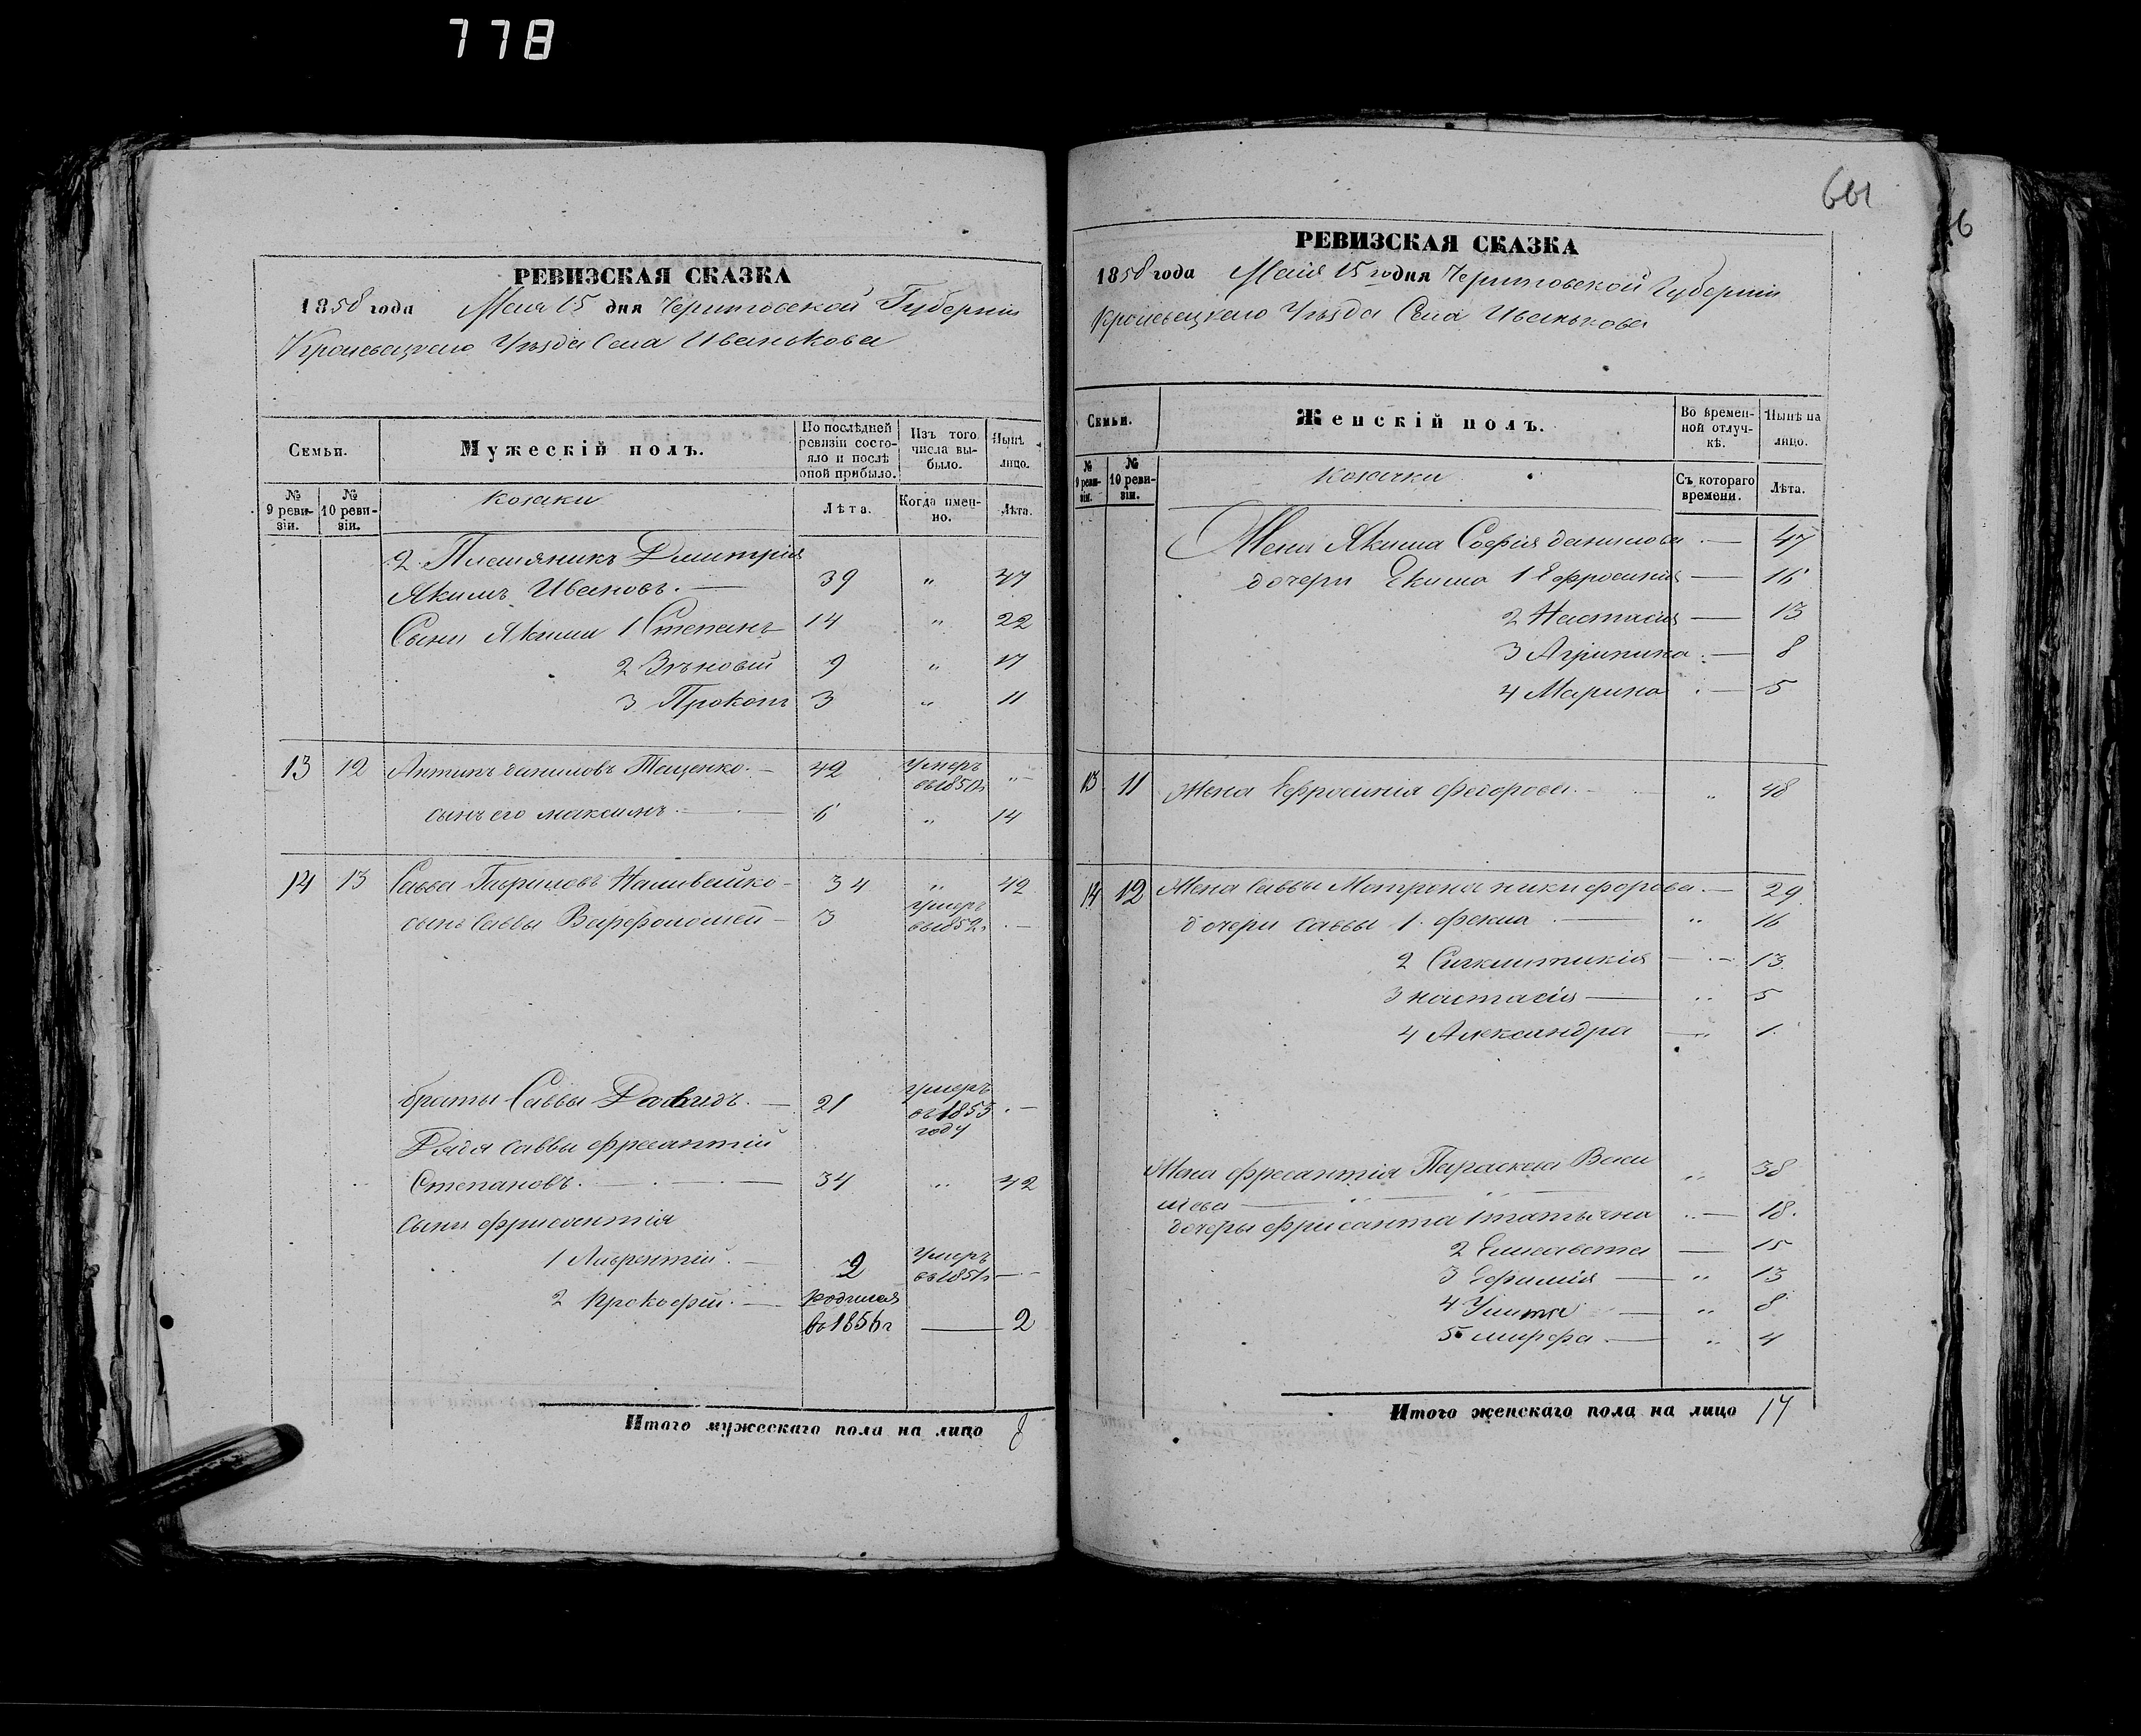 778
РЕВИЗСКАЯ СКАЗКА
1858 года Мая 15 дня Черниговской Губернии
Кролевецкаго Уѣзда Села Иванькова
Семьи.
Мужескій полъ.
По послѣдней ревизіи состояло и послѣ оной прибыло.
Изъ того числа выбыло.
Нынѣ лицо.
№ 9 ревизіи.
№ 10 ревизіи.
козаки
Лѣта.
Когда именно.
Лѣта.
2 Племяникъ Дмитрія
Акимъ Ивановъ. — 39 " 47
Сыни Акима 1 Степанъ 14 " 22
2 Зѣновій 9 " 17
3 Прокопъ 3 " 11
13 12 Антипъ даниловъ Тащенко. — 42 Умеръ въ 1850г "
сынъ его максимъ. — 6 " 14
14 13 Савва Гавриловъ Наливайко — 34 " 42
сынъ Саввы Варфоломей — 3 умеръ въ 1852г. —
браты Саввы Давидъ. — 21 умеръ въ 1853 году —
Дядя саввы фрисантій
Степановъ. — 34 " 42
Сыни фрисантія
1 Лаврентій. — 2 Умеръ въ 1851г —
2 Прокофій. — родился
въ 1856г — 2
Итого мужескаго пола на лицо 8
661
6
РЕВИЗСКАЯ СКАЗКА
1858 года Маія 15 го дня Черниговской Губерніи
Кролевецкаго Уѣзда Села Иванькова
Семьи.
Женскій полъ.
Во временной отлучкѣ.
Нынѣ на лицо.
№ 9 ревизіи.
№ 10 ревизіи.
козачки
Съ котораго времени.
Лѣта.
Жена Акима Софія данилова — 47
дочери Екима 1 Ефросинія — 16
2 Настасия — 13
3 Агрипина — 8
4 Марина — 5
13 11 Жена Ефросинія федорова. — " 48
14 12 Жена Саввы Матрена никифорова. — 29
дочери саввы 1. фекла — " 16
2 Синклитикія — 13
3 настасія — " 5
4 Александра — 1
Жена фрисантія Параскева Васи " 38
лиева
дочеры фрисанта 1 татьяна " — 18.
2 Елисавета — 15
3 Ефимія — " 13
4 Улита — " 8
5 марфа — " 4
Итого женскаго пола на лицо 17